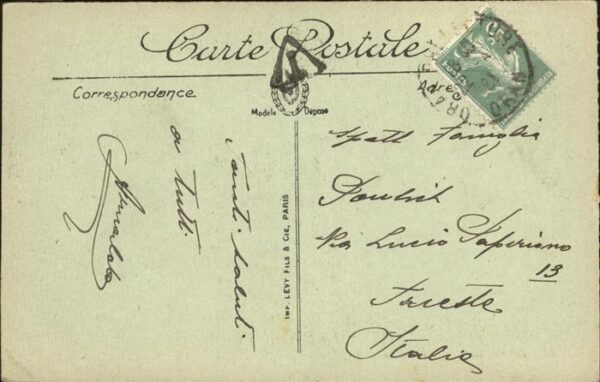 Carte Postale
Correspondance
Adresse
Modèle Déposé
Tanti saluti
a tutti
IMP. LÉVY FILS & CIE, PARIS
Spett Famiglia
Via Lucio Papiriano
13
Trieste
Italia